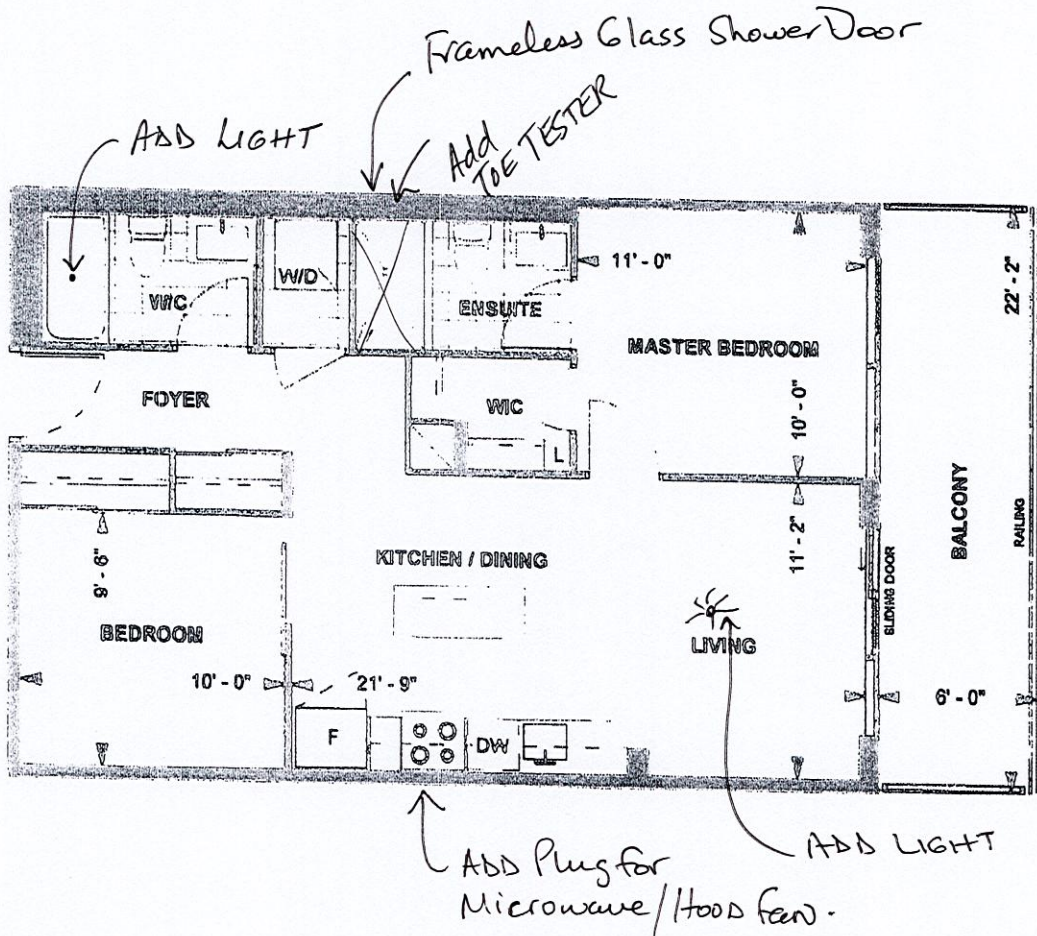 Frameless Glass Shower Door
ADD LIGHT
Add
TOE TESTER
W/C
W/D
ENSUITE
11' - 0"
22' - 2"
MASTER BEDROOM
FOYER
WIC
10' - 0"
L
BALCONY
RAILING
9' - 9"
KITCHEN / DINING
11' - 2"
SLIDING DOOR
BEDROOM
LIVING
10' - 0"
21' - 9"
6' - 0"
F
DW
ADD Plug for
Microwave/HOOD Fan.
ADD LIGHT